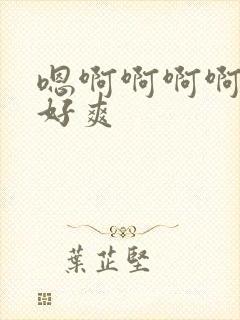 嗯啊啊啊啊
好爽
葉芷堅